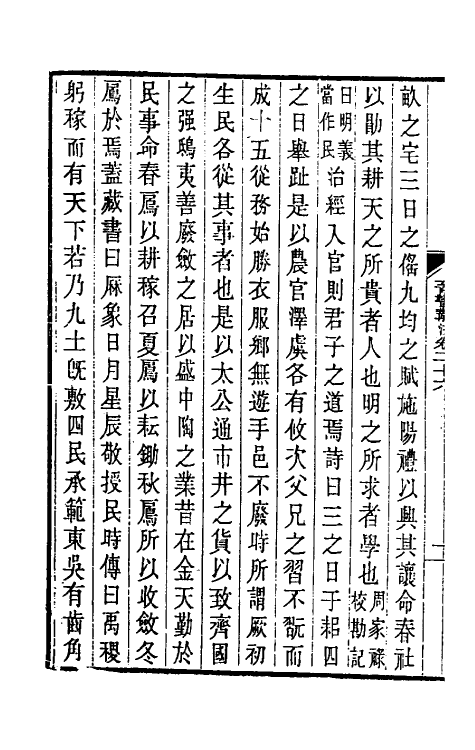 畝之宅三日之傜九均之賦施陽禮以興其讓命春社
以勖其耕天之所貴者人也明之所求者學也周家祿校勘記
日明義當作民治經入官則君子之道焉詩曰三之日于耜四
之日舉趾是以農官澤虞各有攸次父兄之習不翫而
成十五從務始勝衣服鄉無遊手邑不廢時所謂厥初
生民各從其事者也是以太公通市井之貨以致齊國
之强鴟夷善廢斂之居以盛中陶之業昔在金天勤於
民事命春鳸以耕稼召夏鳸以耘鋤秋鳸所以收斂冬
鳸於焉蓋藏書曰厤象日月星辰敬授民時傳曰禹稷
躬稼而有天下若乃九土旣敷四民承範東吳有齒角